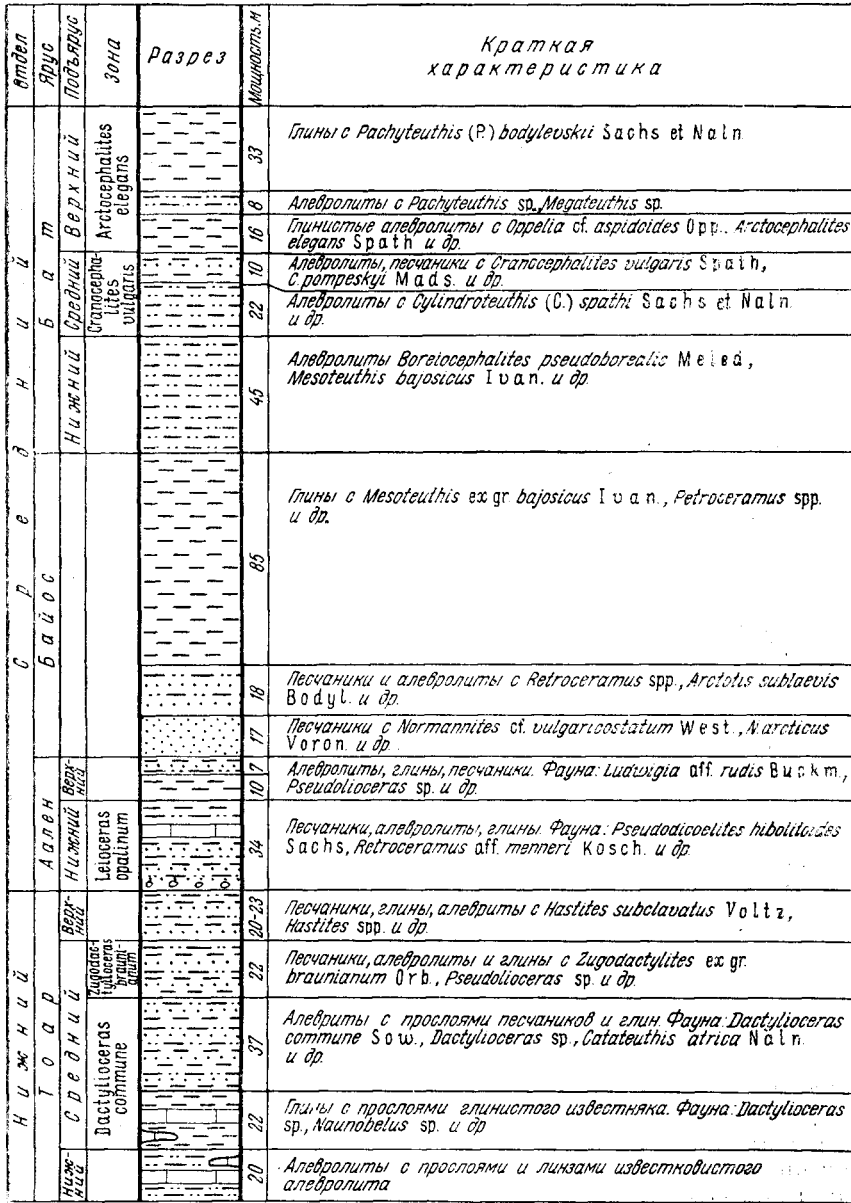 Отдел
Ярус
Подъярус
Зона
Разрез
Мощность, м
Краткая
характеристика
Средний
Бат
Верхний
Arctocephalites
elegans
33
Глины с Pachyteuthis (P.) bodylevskii Sachs et Naln.
8
Алевролиты с Pachyteuthis sp., Megateuthis sp.
16
Глинистые алевролиты с Oppelia cf. aspidoides Opp., Arctocephalites
elegans Spath и др.
Средний
Cranocepha-
lites
vulgaris
10
Алевролиты, песчаники с Cranocephalites vulgaris Spath,
C. pompeskyi Mads. и др.
22
Алевролиты с Cylindroteuthis (C.) spathi Sachs et Naln.
и др.
Нижний
45
Алевролиты Boreiocephalites pseudoborealis Meled,
Mesoteuthis bajosicus Ivan. и др.
Байос
85
Глины с Mesoteuthis ex gr. bajosicus Ivan., Petroceramus spp.
и др.
18
Песчаники и алевролиты с Retroceramus spp., Arctotis sublaevis
Bodyl. и др.
17
Песчаники с Normannites cf. vulgaricostatum West., N. arcticus
Voron. и др.
Аален
Верх-
ний
7
10
Алевролиты, глины, песчаники. Фауна: Ludwigia aff. rudis Buckm.,
Pseudolioceras sp. и др.
Нижний
Leioceras
opalinum
34
Песчаники, алевролиты, глины. Фауна: Pseudodicoelites hibolitoides
Sachs, Retroceramus aff. menneri Kosch. и др.
Нижний
Тоар
Верх-
ний
20-23
Песчаники, глины, алевриты с Hastites subclavatus Voltz,
Hastites spp. и др.
Средний
Zugodac-
tyloceras
brauni-
anum
22
Песчаники, алевролиты и глины с Zugodactylites ex gr.
braunianum Orb., Pseudolioceras sp. и др.
Dactylioceras
commune
37
Алевриты с прослоями песчаников и глин. Фауна: Dactylioceras
commune Sow., Dactylioceras sp., Catateuthis atrica Naln.
и др.
22
Глины с прослоями глинистого известняка. Фауна: Dactylioceras
sp., Naunobelus sp. и др
Ниж-
ний
20
Алевролиты с прослоями и линзами известковистого
алевролита